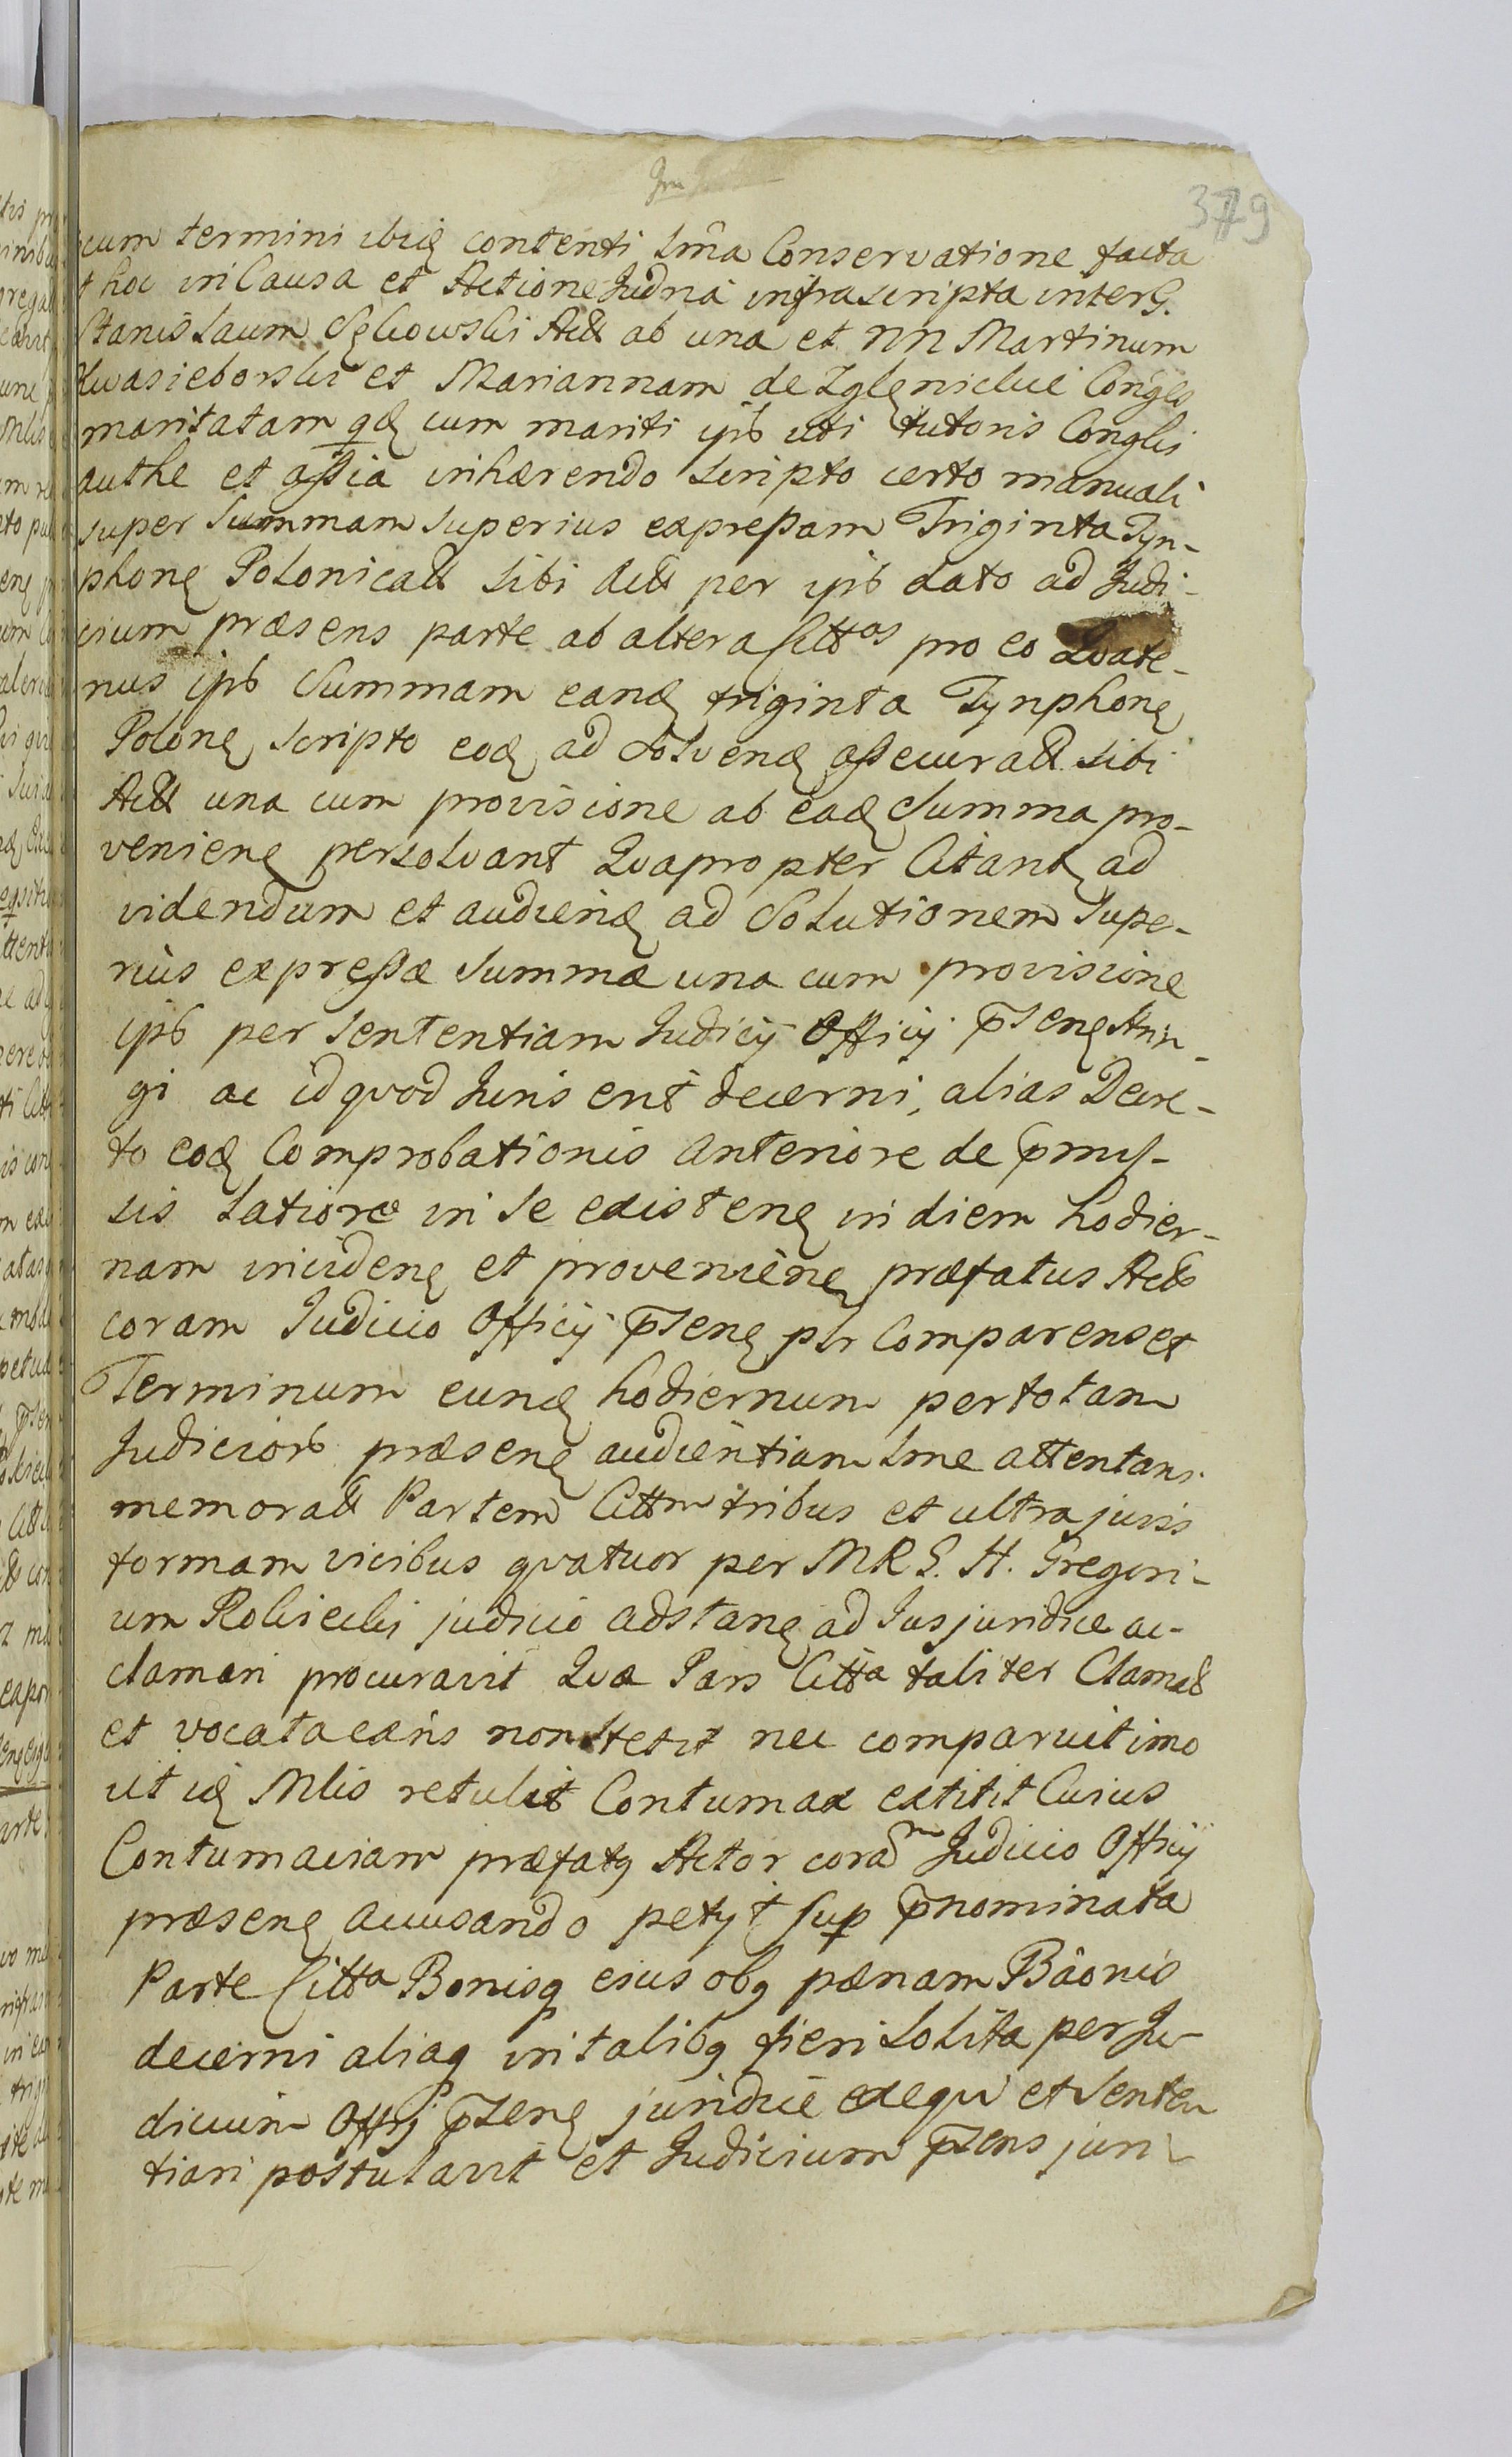 379
cum termini ibiq contenti Sma Conservatione facta
t hoc in Causa et Actione Judna infrascripta inter G.
Stanislaum Act ab una et NN Martinum
Kwasieborski et Mariannam de Zglenickie Conges
maritatam qd cum mariti ipb uti tutoris Conglis
authe et assia inhærendo scripto certo manuali
super Summam superius expressam Triginta Tyn-
phonę Polonicatt sibi Actt per ipb dato ad Judi-
cium præsens parte ab altera Citt^as pro eo Quate-
nus ipb Summam eandę triginta Tynphonę
Polonę scripto eodę ad solvendę assecuratt sibi
Actt una cum provisione ab eadę Summa pro-
venienę persolvant Quapropter Citantę ad
videndum et audiendę ad Solutionem supe-
rius expressæ summæ una cum provisione
ipb per sententiam Judicij Officij p̄senę Strin-
gi ac id quod Juris erit decerni, alias Decre-
to eodę Comprobationis anteriore de p̄mis-
sis latiore in se existenę in diem hodier-
nam incidenę et provenienę præfatus Act
coram Judicio Officij p̄senę plr Comparens et
Terminum eundę hodiernum per totam
Judiciorb præsenę audientiam Sme attentans
memoratt Partem Citt^m tribus et ultra juris
formam vicibus quatuor per M R S. H. Gregori-
um Rolicchi judicio adstanę ad Jus juridice ac-
clamari procuravit Quæ Pars Citt^a taliter Clamat
et vocata eans non stetit nec comparuit imo
ut idę Mlis retulit Contumax extitit Cuius
Contumaciam præfatq Actor corā^m Judicio Officij
præsenę accusando petyt sup p̄nominata
Parte Citt^a Bonisq eius obq pænam Bâonis
decerni aliaq in talibq fieri solita per Ju-
dicium Offij p̄senę juridice exequi et Senten
tiari postulavit et Judicium p̄sens juri-